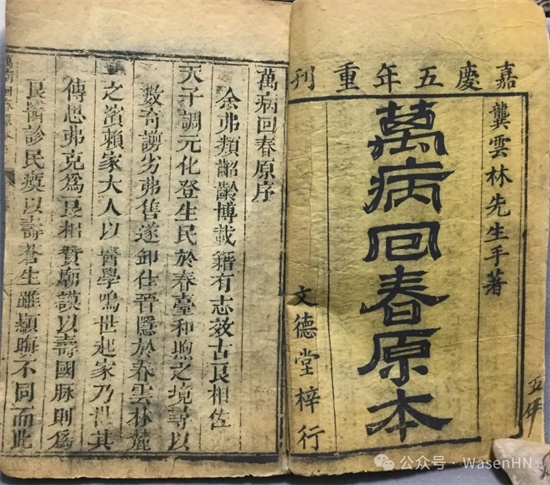 嘉慶五年重刊
龔雲林先生手著
萬病回春原本
文德堂梓行
萬病回春原序
余弗類齠齡博載籍有志效古良相佐
天子調元化登生民於春臺和煦之境尋以
數奇謭劣弗售遂卸仕晉隱於春雲林麓
之濱賴家大人以醫學鳴世起家乃世其
傳思弗克為良相贊廟謨以壽國脉則為
良醫診民瘼以壽蒼生雖顯晦不同而此
公众号 · WasenHN